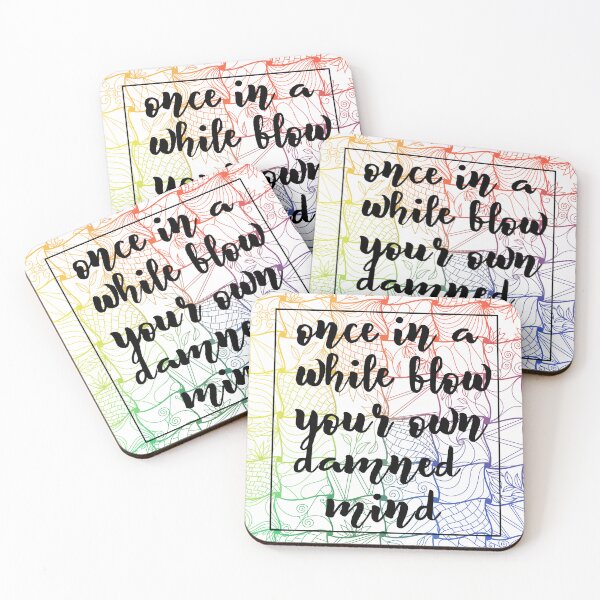 once in a
while blow
own
once in a
while blow
your own
damned
once in a
while blow
your own
damne
min
once in a
while blow
your own
damned
mind